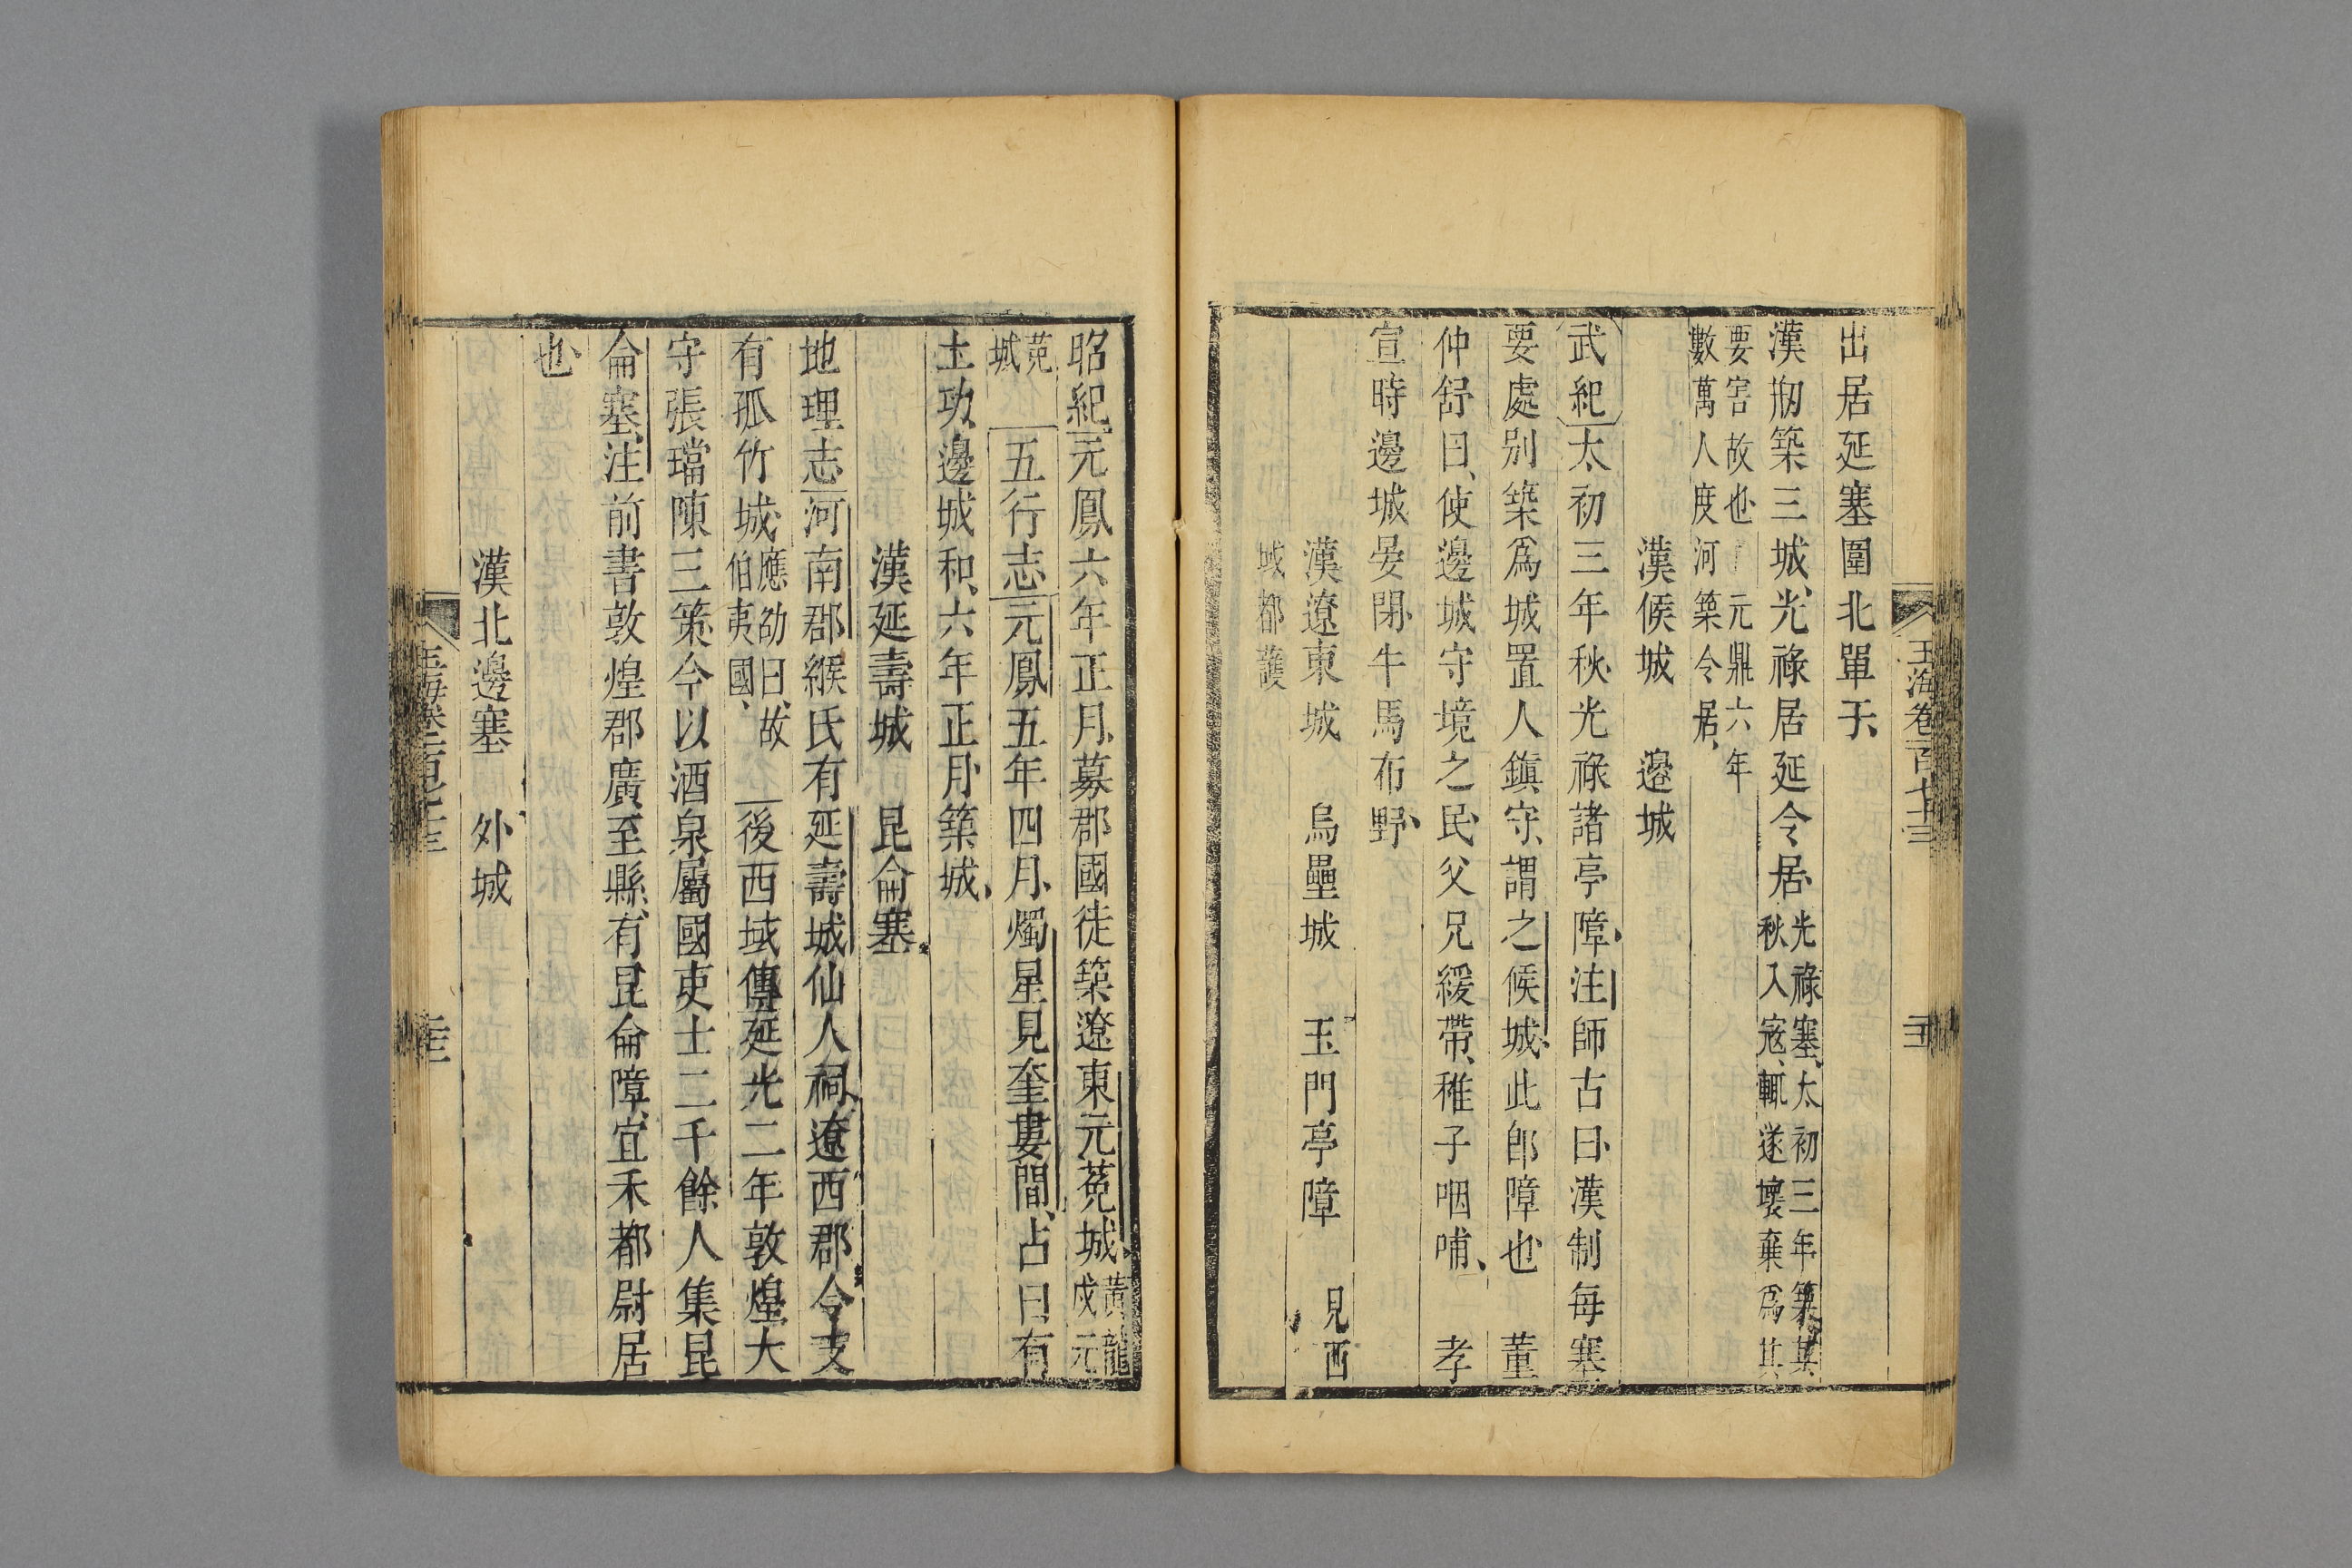 玉海卷一百七十三
出居延塞圍北單于
漢刱築三城光祿居延令居光祿塞太初三年築其秋入寇輒遂壞棄爲其
要害故也 元鼎六年數萬人度河築令居
漢候城 邊城
武紀太初三年秋光祿諸亭障注師古曰漢制每塞
要處别築爲城置人鎮守謂之候城此郎障也 董
仲舒曰使邊城守境之民父兄緩帶稚子咽哺 孝
宣時邊城晏閉牛馬布野
漢遼東城 烏壘城 玉門亭障 見西
域都護
昭紀元鳳六年正月募郡國徒築遼東元菟城黃龍戍元
菟城 五行志元鳳五年四月燭星見奎婁間占曰有
土功邊城和六年正月築城
漢延壽城 昆侖塞
地理志河南郡緱氏有延壽城仙人祠遼西郡令支
有孤竹城應劭曰故伯夷國 後西域傳延光二年敦煌大
守張璫陳三策今以酒泉屬國吏士二千餘人集昆
侖塞注前書敦煌郡廣至縣有昆侖障宜禾都尉居
也
漢北邊塞 外城